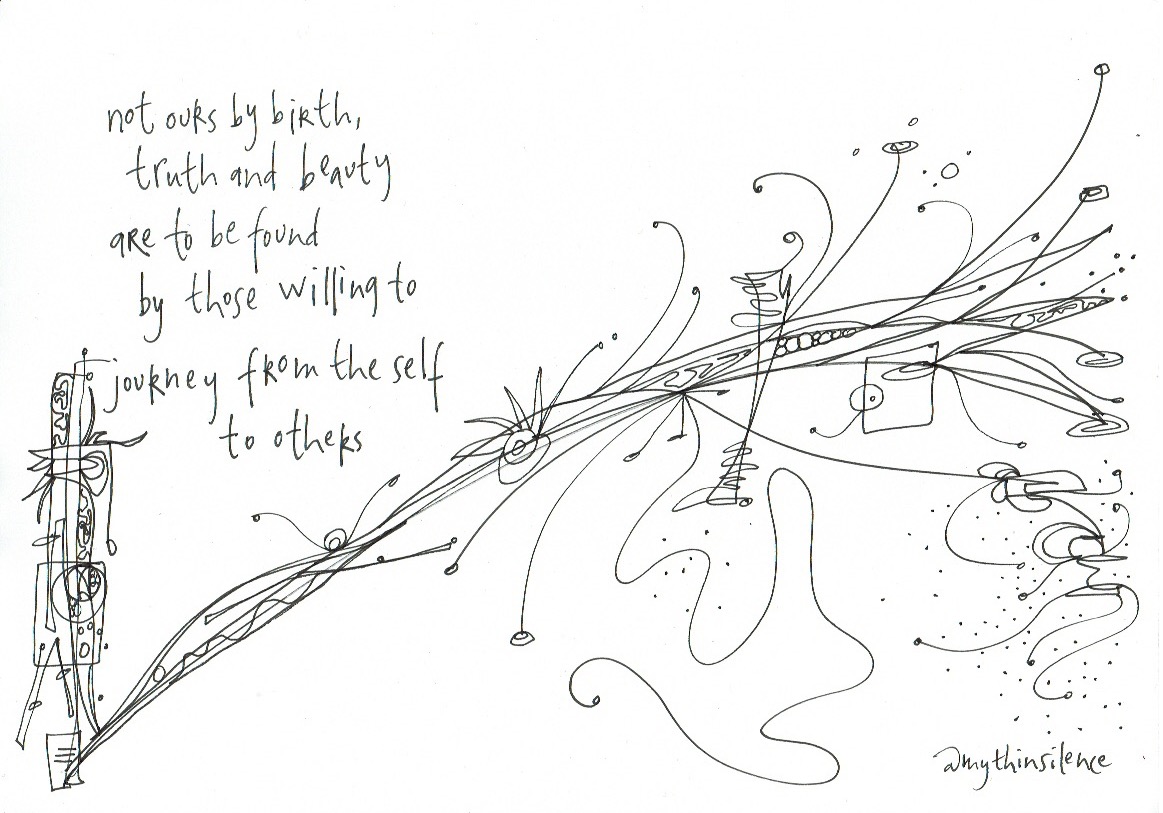 not ours by birth,
truth and beauty
are to be found
by those willing to
journey from the self
to others
@mythinsilence